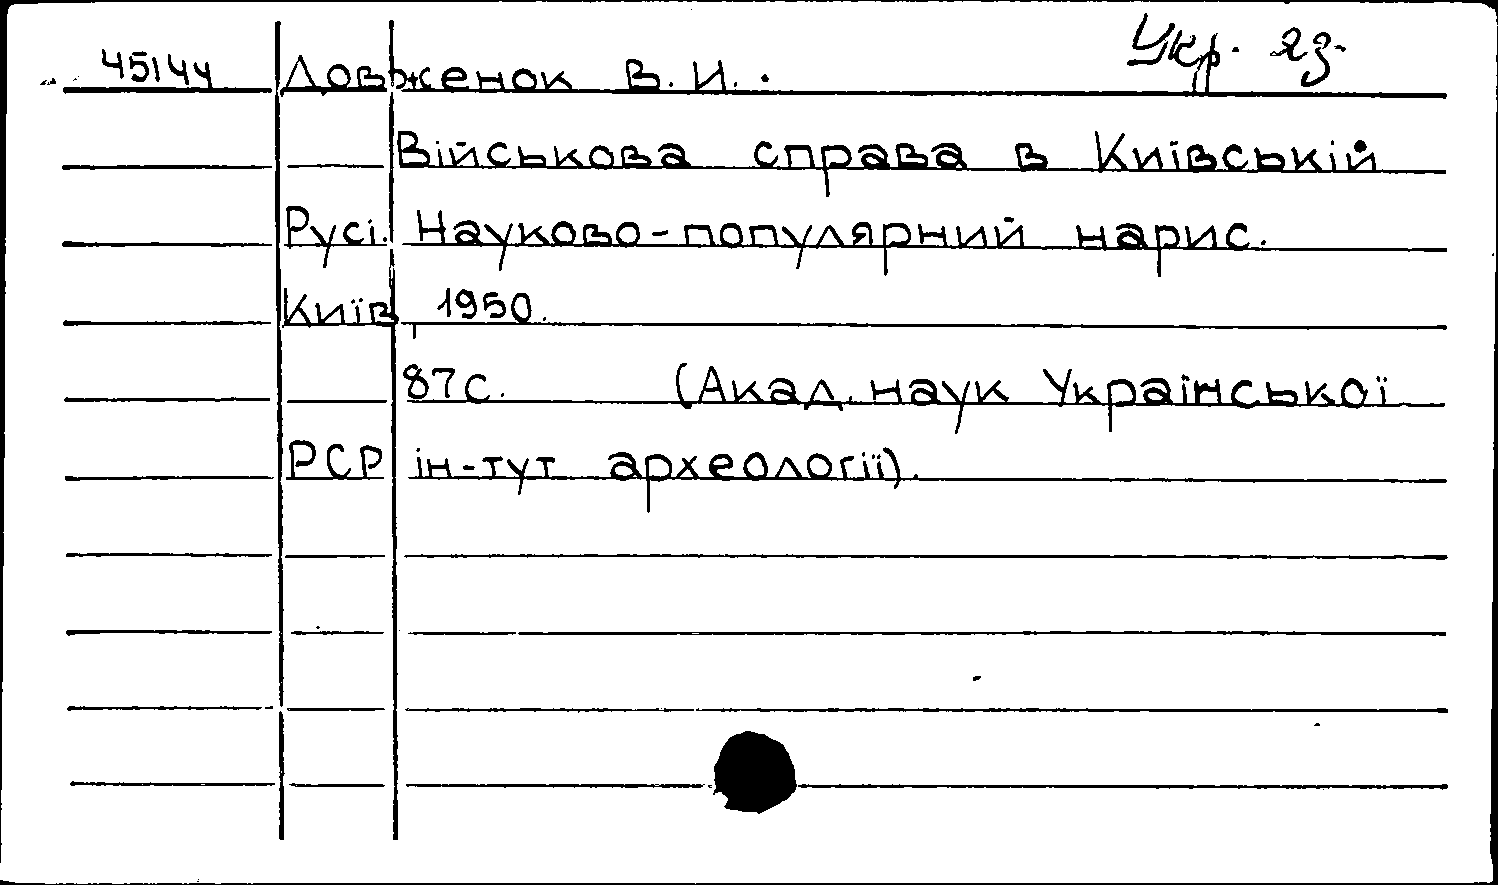 Укр. яз.
45144 Довженок В. И. .
Військова справа в Київській
Русі. Науково-популярний нарис.
Київ, 1950.
87с. (Акад. наук Української
РСР ін-тут археології).